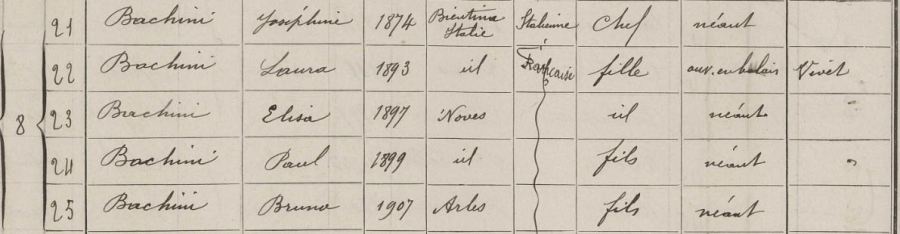 21 Bachini Joséphine 1874 Bientina Italie Italienne Chef néant
8 22 Bachini Laura 1893 id Française fille ouv. en balais Vivet
23 Bachini Elisa 1897 Noves id néant "
24 Bachini Paul 1899 id fils néant "
25 Bachini Bruno 1907 Arles fils néant